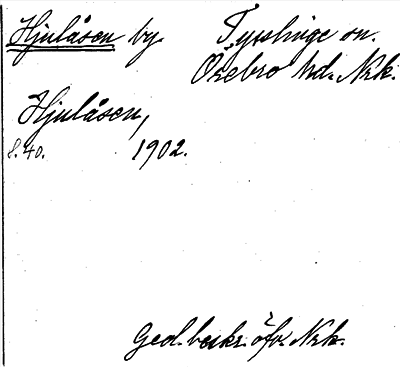 Hjulåsen by. Tysslinge sn.
Örebro hd. Nrk.
Hjulåsen,
s. 40. 1902.
Geol. beskr. öfv. Nrk.